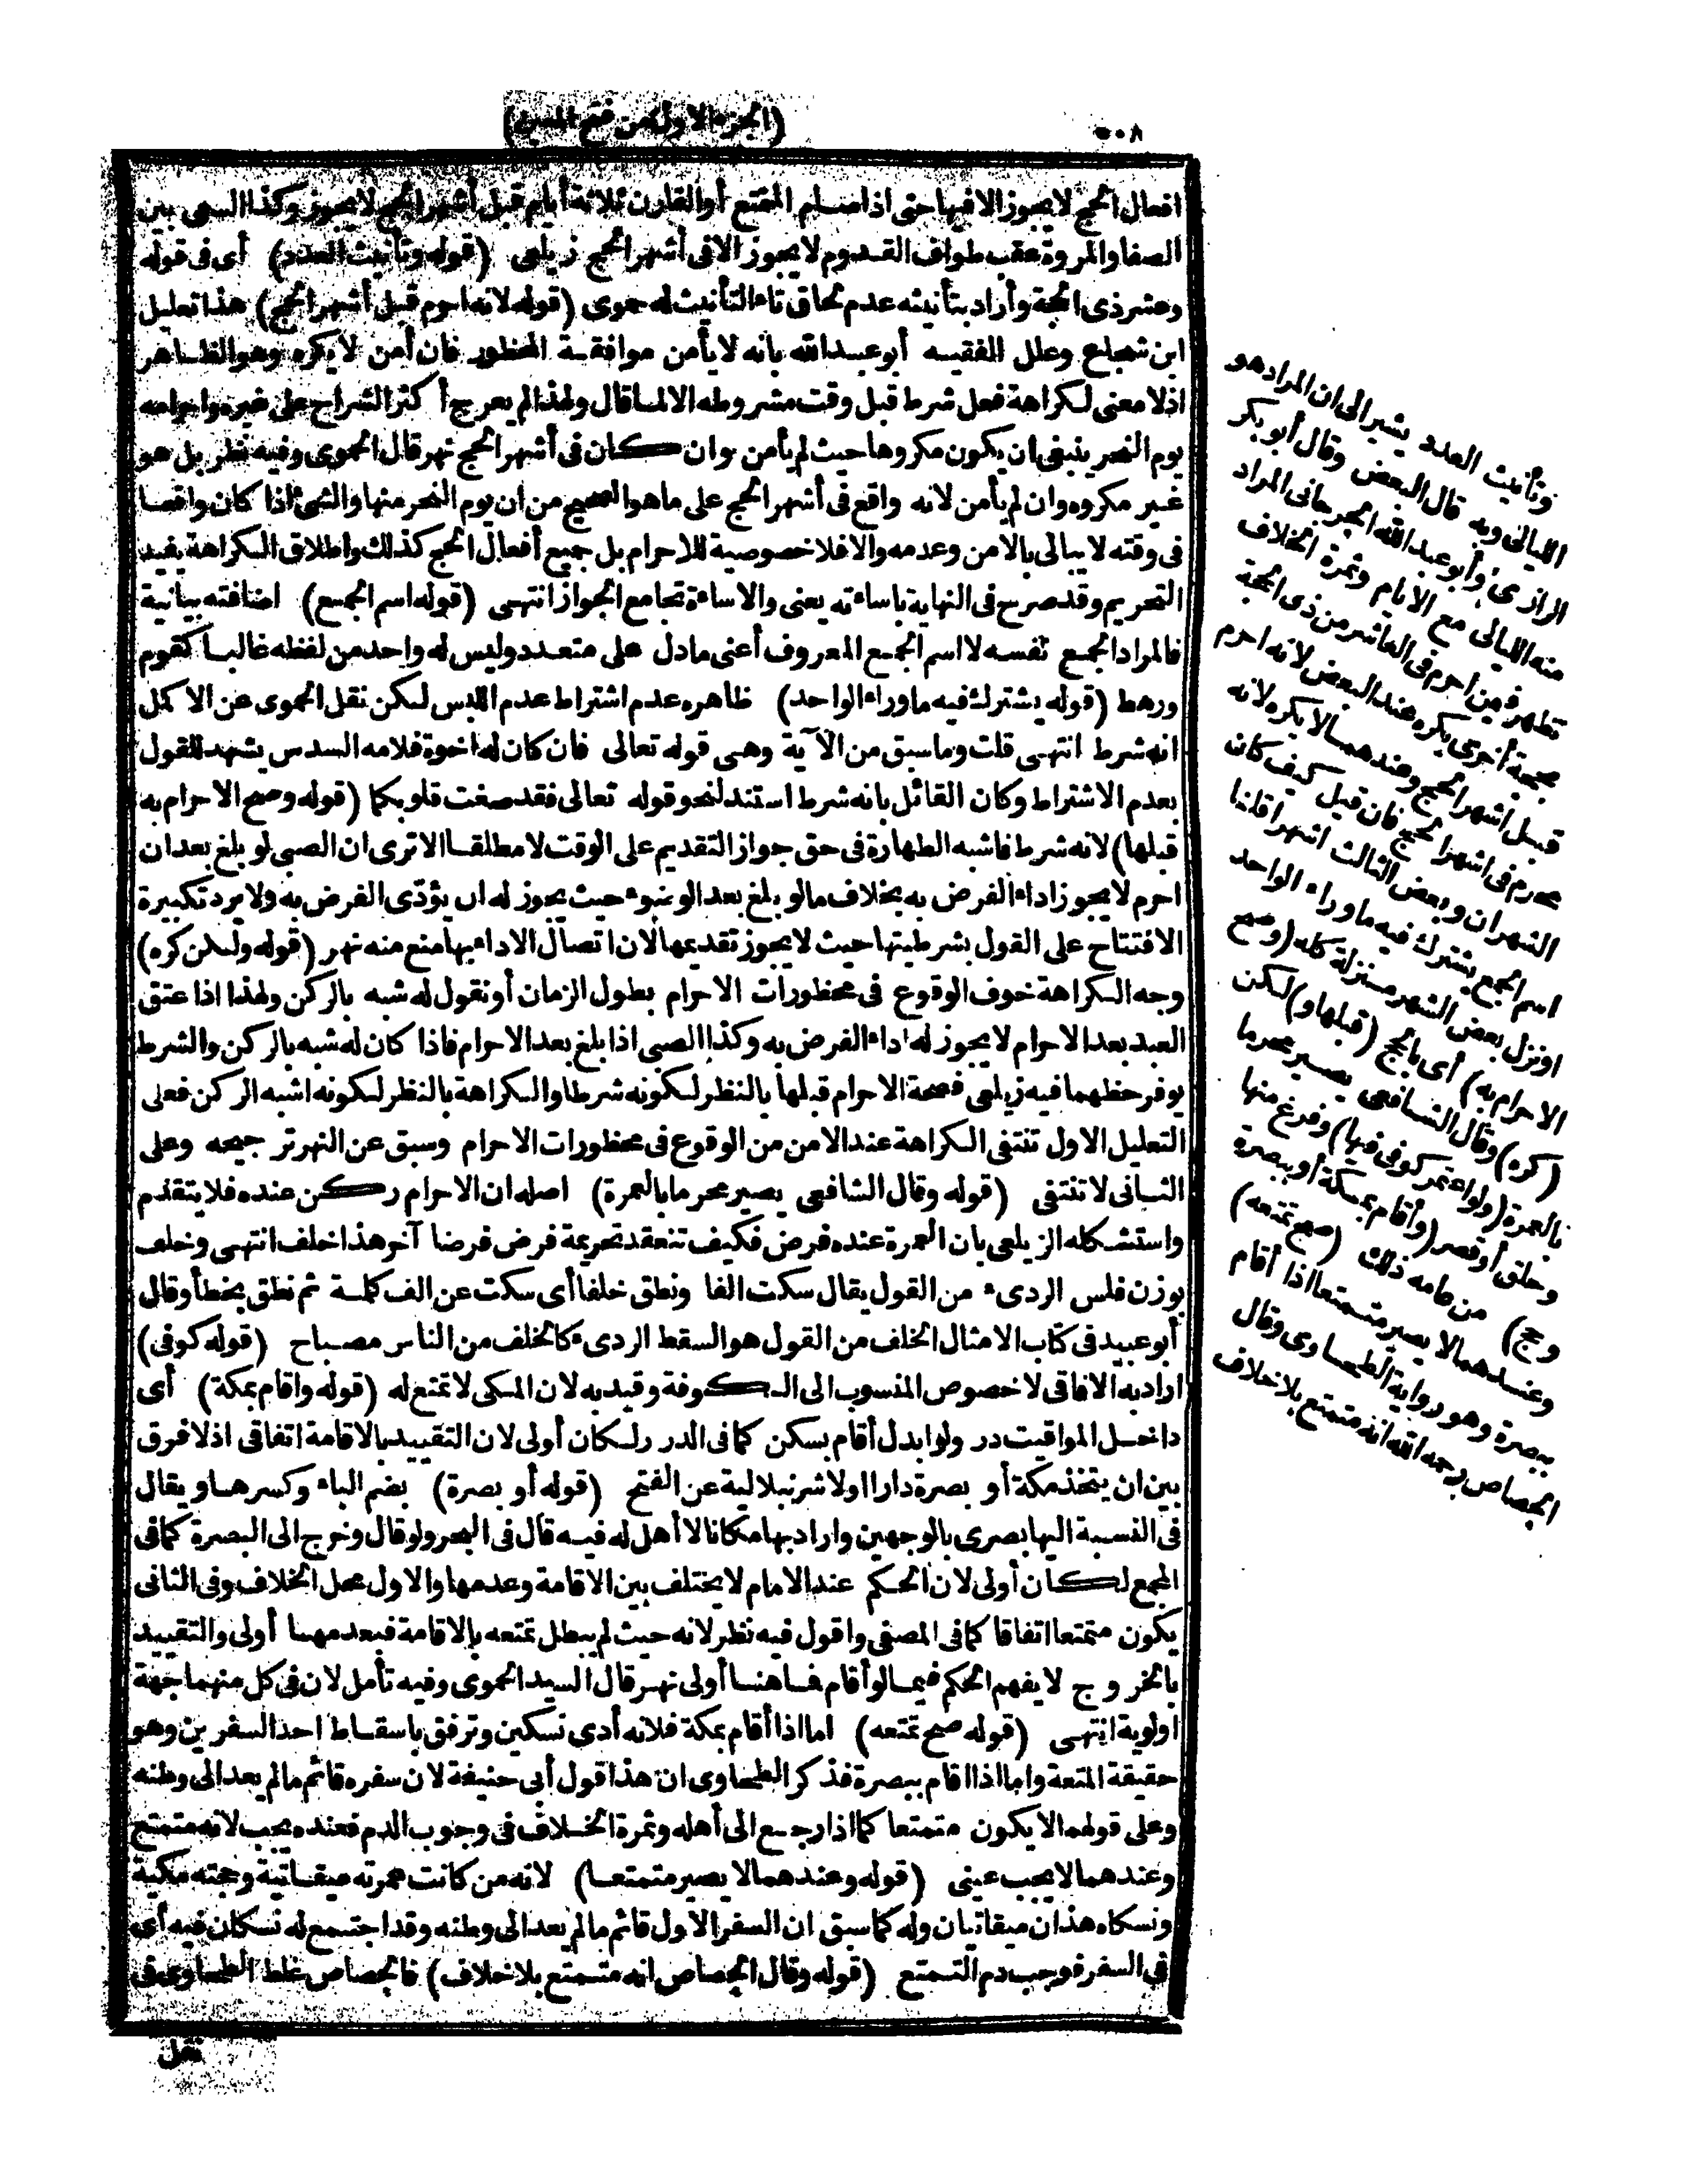 (الجزء الاول من فتح المعين)
٥٠٨
افعال الحج لا يجوز الا فيها حتى اذا صام المتمتع أو القارن ثلاثة أيام قبل أشهر الحج لا يجوز وكذا السعى بين
الصفا والمروة عقب طواف القدوم لا يجوز الا فى أشهر الحج زيلعى (قوله وتأنيث العدد) أى فى قوله
وعشر ذى الحجة وأراد بتأنيثه عدم لحاق تاء التأنيث له حموى (قوله لانه احرم قبل أشهر الحج) هذا تعليل
ابن شجاع وعلل الفقيه أبو عبد الله بانه لا يأمن موافقة المحظور فان أمن لا يكره وهو الظاهر
اذلا معنى لكراهة فعل شرط قبل وقت مشروطه الا لما قال ولهذا لم يعرج أكثر الشراح على غيره واحرامه
يوم النحر ينبغى ان يكون مكروها حيث لم يأمن وان كان فى أشهر الحج نهر قال الحموى وفيه نظر بل هو
غير مكروه وان لم يأمن لانه واقع فى أشهر الحج على ما هو الصحيح من ان يوم النحر منها والشئ اذا كان واقعا
فى وقته لا يبالى بالامن وعدمه والا فلا خصوصية للاحرام بل جميع أفعال الحج كذلك واطلاق الكراهة يفيد
التحريم وقد صرح فى النهاية باساءته يعنى والاساءة تجامع الجواز انتهى (قوله اسم الجمع) اضافته بيانية
فالمراد الجمع نفسه لا اسم الجمع المعروف أعنى مادل على متعدد وليس له واحد من لفظه غالبا كقوم
ورهط (قوله يشترك فيه ما وراء الواحد) ظاهره عدم اشتراط عدم اللبس لكن نقل الحموى عن الاكمل
انه شرط انتهى قلت وما سبق من الآية وهى قوله تعالى فان كان له اخوة فلامه السدس يشهد للقول
بعدم الاشتراط وكان القائل بانه شرط استند لنحو قوله تعالى فقد صغت قلوبكما (قوله وصح الاحرام به
قبلها) لانه شرط فاشبه الطهارة فى حق جواز التقديم على الوقت لا مطلقا الاترى ان الصبى لو بلغ بعد ان
احرم لا يجوز اداء الفرض به بخلاف ما لو بلغ بعد الوضوء حيث يجوز له ان يؤدى الفرض به ولا يرد تكبيرة
الافتتاح على القول بشرطيتها حيث لا يجوز تقديمها لان اتصال الاداء بها منع منه نهر (قوله ولكن كره)
وجه الكراهة خوف الوقوع فى محظورات الاحرام بطول الزمان أو نقول له شبه بالركن ولهذا اذا عتق
العبد بعد الاحرام لا يجوز له اداء الفرض به وكذا الصبى اذا بلغ بعد الاحرام فاذا كان له شبه بالركن والشرط
يوفر حظهما فيه زيلعى فصحة الاحرام قبلها بالنظر لكونه شرطا والكراهة بالنظر لكونه اشبه الركن فعلى
التعليل الاول تنتفى الكراهة عند الامن من الوقوع فى محظورات الاحرام وسبق عن النهر ترجيحه وعلى
الثانى لا تنتفى (قوله وقال الشافعى يصير محرما بالعمرة) اصله ان الاحرام ركن عنده فلا يتقدم
واستشكله الزيلعى بان العمرة عنده فرض فكيف تنعقد تحريمة فرض فرضا آخر هذا خلف انتهى وخلف
بوزن فلس الردىء من القول يقال سكت الفا ونطق خلفا أى سكت عن الف كلمة ثم نطق بخطأ وقال
أبو عبيد فى كتاب الامثال الخلف من القول هو السقط الردىء كالخلف من الناس مصباح (قوله كوفى)
اراد به الافاقى لا خصوص المنسوب الى الكوفة وقيد به لان المكى لا تمتع له (قوله واقام بمكة) أى
داخل المواقيت در ولو ابدل أقام بسكن كما فى الدرر لكان أولى لان التقييد بالاقامة اتفاقى اذلا فرق
بين ان يتخذ مكة أو بصرة دارا اولا شرنبلالية عن الفتح (قوله أو بصرة) بضم الباء وكسرها ويقال
فى النسبة اليها بصرى بالوجهين واراد بها مكانا لا أهل له فيه قال فى البحر ولو قال وخرج الى البصرة كما فى
المجمع لكان أولى لان الحكم عند الامام لا يختلف بين الاقامة وعدمها والاول محل الخلاف وفى الثانى
يكون متمتعا اتفاقا كما فى المصفى واقول فيه نظر لانه حيث لم يبطل تمتعه بالاقامة فبعدمها أولى والتقييد
بالخروج لا يفهم الحكم فيما لو أقام فما هنا أولى نهر قال السيد الحموى وفيه تأمل لان فى كل منهما جهة
اولوية انتهى (قوله صح تمتعه) اما اذا أقام بمكة فلانه أدى نسكين وترفق باسقاط احد السفرين وهو
حقيقة المتعة واما اذا اقام ببصرة فذكر الطحاوى ان هذا قول أبى حنيفة لان سفره قائم ما لم يعد الى وطنه
وعلى قولهما لا يكون متمتعا كما اذا رجع الى أهله وثمرة الخلاف فى وجوب الدم فعنده يجب لانه متمتع
وعندهما لا يجب عينى (قوله وعندهما لا يصير متمتعا) لانه من كانت عمرته ميقاتية وحجته مكية
ونسكاه هذان ميقاتيان وله كما سبق ان السفر الاول قائم ما لم يعد الى وطنه وقد اجتمع له نسكان فيه أى
فى السفر فوجب دم التمتع (قوله وقال الجصاص انه متمتع بلا خلاف) فالجصاص غلط الطحاوى فى
نقل
وتأنيث العدد يشير الى ان المراد هو
الليالى وبه قال البعض وقال أبو بكر
الرازى وأبو عبد الله الجرجانى المراد
منه الليالى مع الايام وثمرة الخلاف
تظهر فيمن احرم فى العاشر من ذى الحجة
بحجة أخرى يكره عند البعض لانه احرم
قبل اشهر الحج وعندهما لا يكره لانه
محرم فى اشهر الحج فان قيل كيف كان
الشهران وبعض الثالث اشهرا قلنا
اسم الجمع يشترك فيه ما وراء الواحد
او نزل بعض الشهر منزلة كله (وصح
الاحرام به) أى بالحج (قبلها و) لكن
(كره) وقال الشافعى يصير محرما
بالعمرة (ولو اعتمر كوفى فيها) وفرغ منها
وحلق أو قصر (وأقام بمكة أو ببصرة
وحج) من عامه ذلك (صح تمتعه)
وعندهما لا يصير متمتعا اذا أقام
ببصرة وهو رواية الطحاوى وقال
الجصاص رحمه الله انه متمتع بلا خلاف